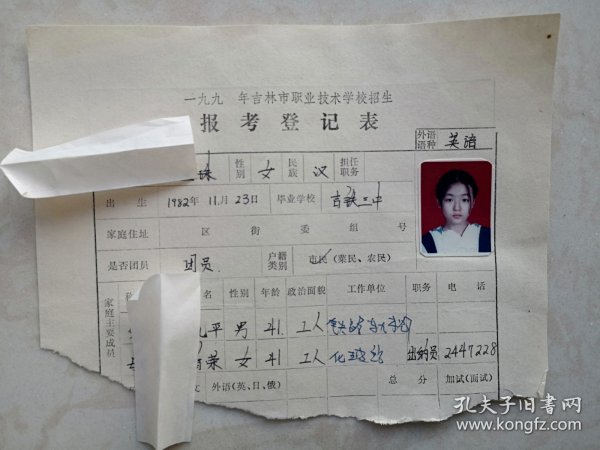 一九九 年吉林市职业技术学校招生
报考登记表
外语语种 英语
珠 性别 女 民族 汉 担任职务
出生 1982年11月23日 毕业学校 吉铁三中
家庭住址 区 街 委 组 号
是否团员 团员 户籍类别 市民(菜民、农民)
家庭主要成员 名 性别 年龄 政治面貌 工作单位 职务 电话
平 男 41 工人
荣 女 41 工人 出纳员 2447228
文 外语(英、日、俄) 总分 加试(面试)
孔夫子旧书网
www.kongfz.com